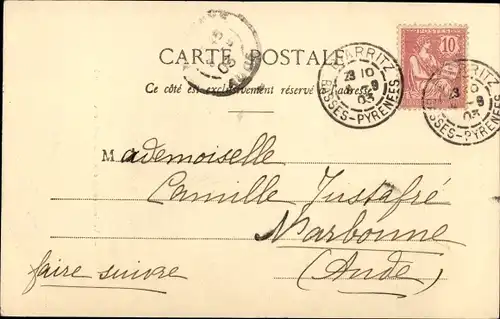 CARTE POSTALE
Ce côté est exclusivement réservé à l'adresse
10
BIARRITZ
BASSES-PYRENEES
03
BIARRITZ
BASSES-PYRENEES
03
Mademoiselle
Camille Justafré
Narbonne
(Aude)
faire suivre